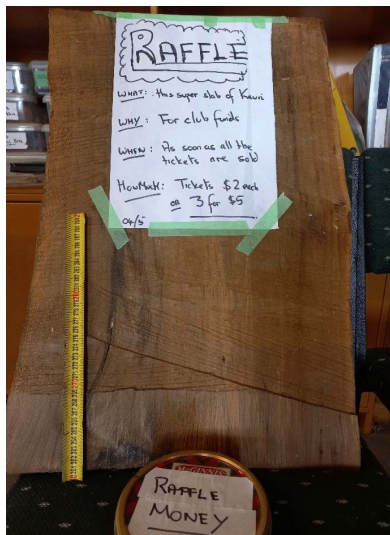 RAFFLE
WHAT: this super slab of Kauri
WHY: For club funds
WHEN: As soon as all the
tickets are sold
HOWMUCH: Tickets $2 each
OR 3 for $5
04/5
McGINNIS
RAFFLE
MONEY